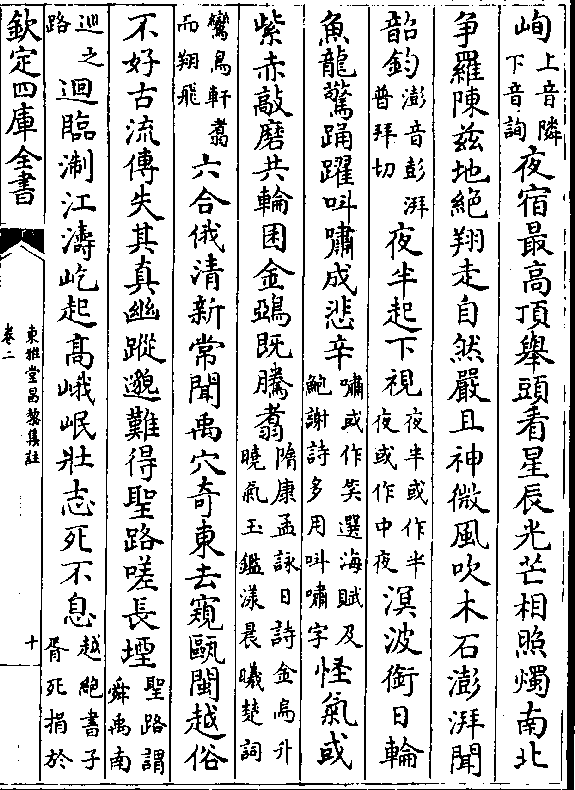 峋上音隣下音詢夜宿最高頂舉頭看星辰光芒相照燭南北
争羅陳兹地絶翔走自然嚴且神微風吹木石澎湃聞
韶鈞澎音彭湃普拜切夜半起下視夜半或作半夜或作中夜溟波銜日輪
魚龍驚踊躍叫嘯成悲辛嘯或作笑選海賦及鮑謝詩多用叫嘯字怪氣或
紫赤敲磨共輪囷金鵶既騰翥隋康孟詠日詩金烏升曉氣玉鑑漾晨曦楚詞
鸞鳥軒翥而翔飛六合俄清新常聞禹穴奇東去窺甌閩越俗
不好古流傳失其真幽蹤邈難得聖路嗟長堙聖路謂舜禹南
巡之路迴臨淛江濤屹起高峨岷壯志死不息越絶書子胥死捐於
欽定四庫全書
東雅堂昌黎集註
卷二
十